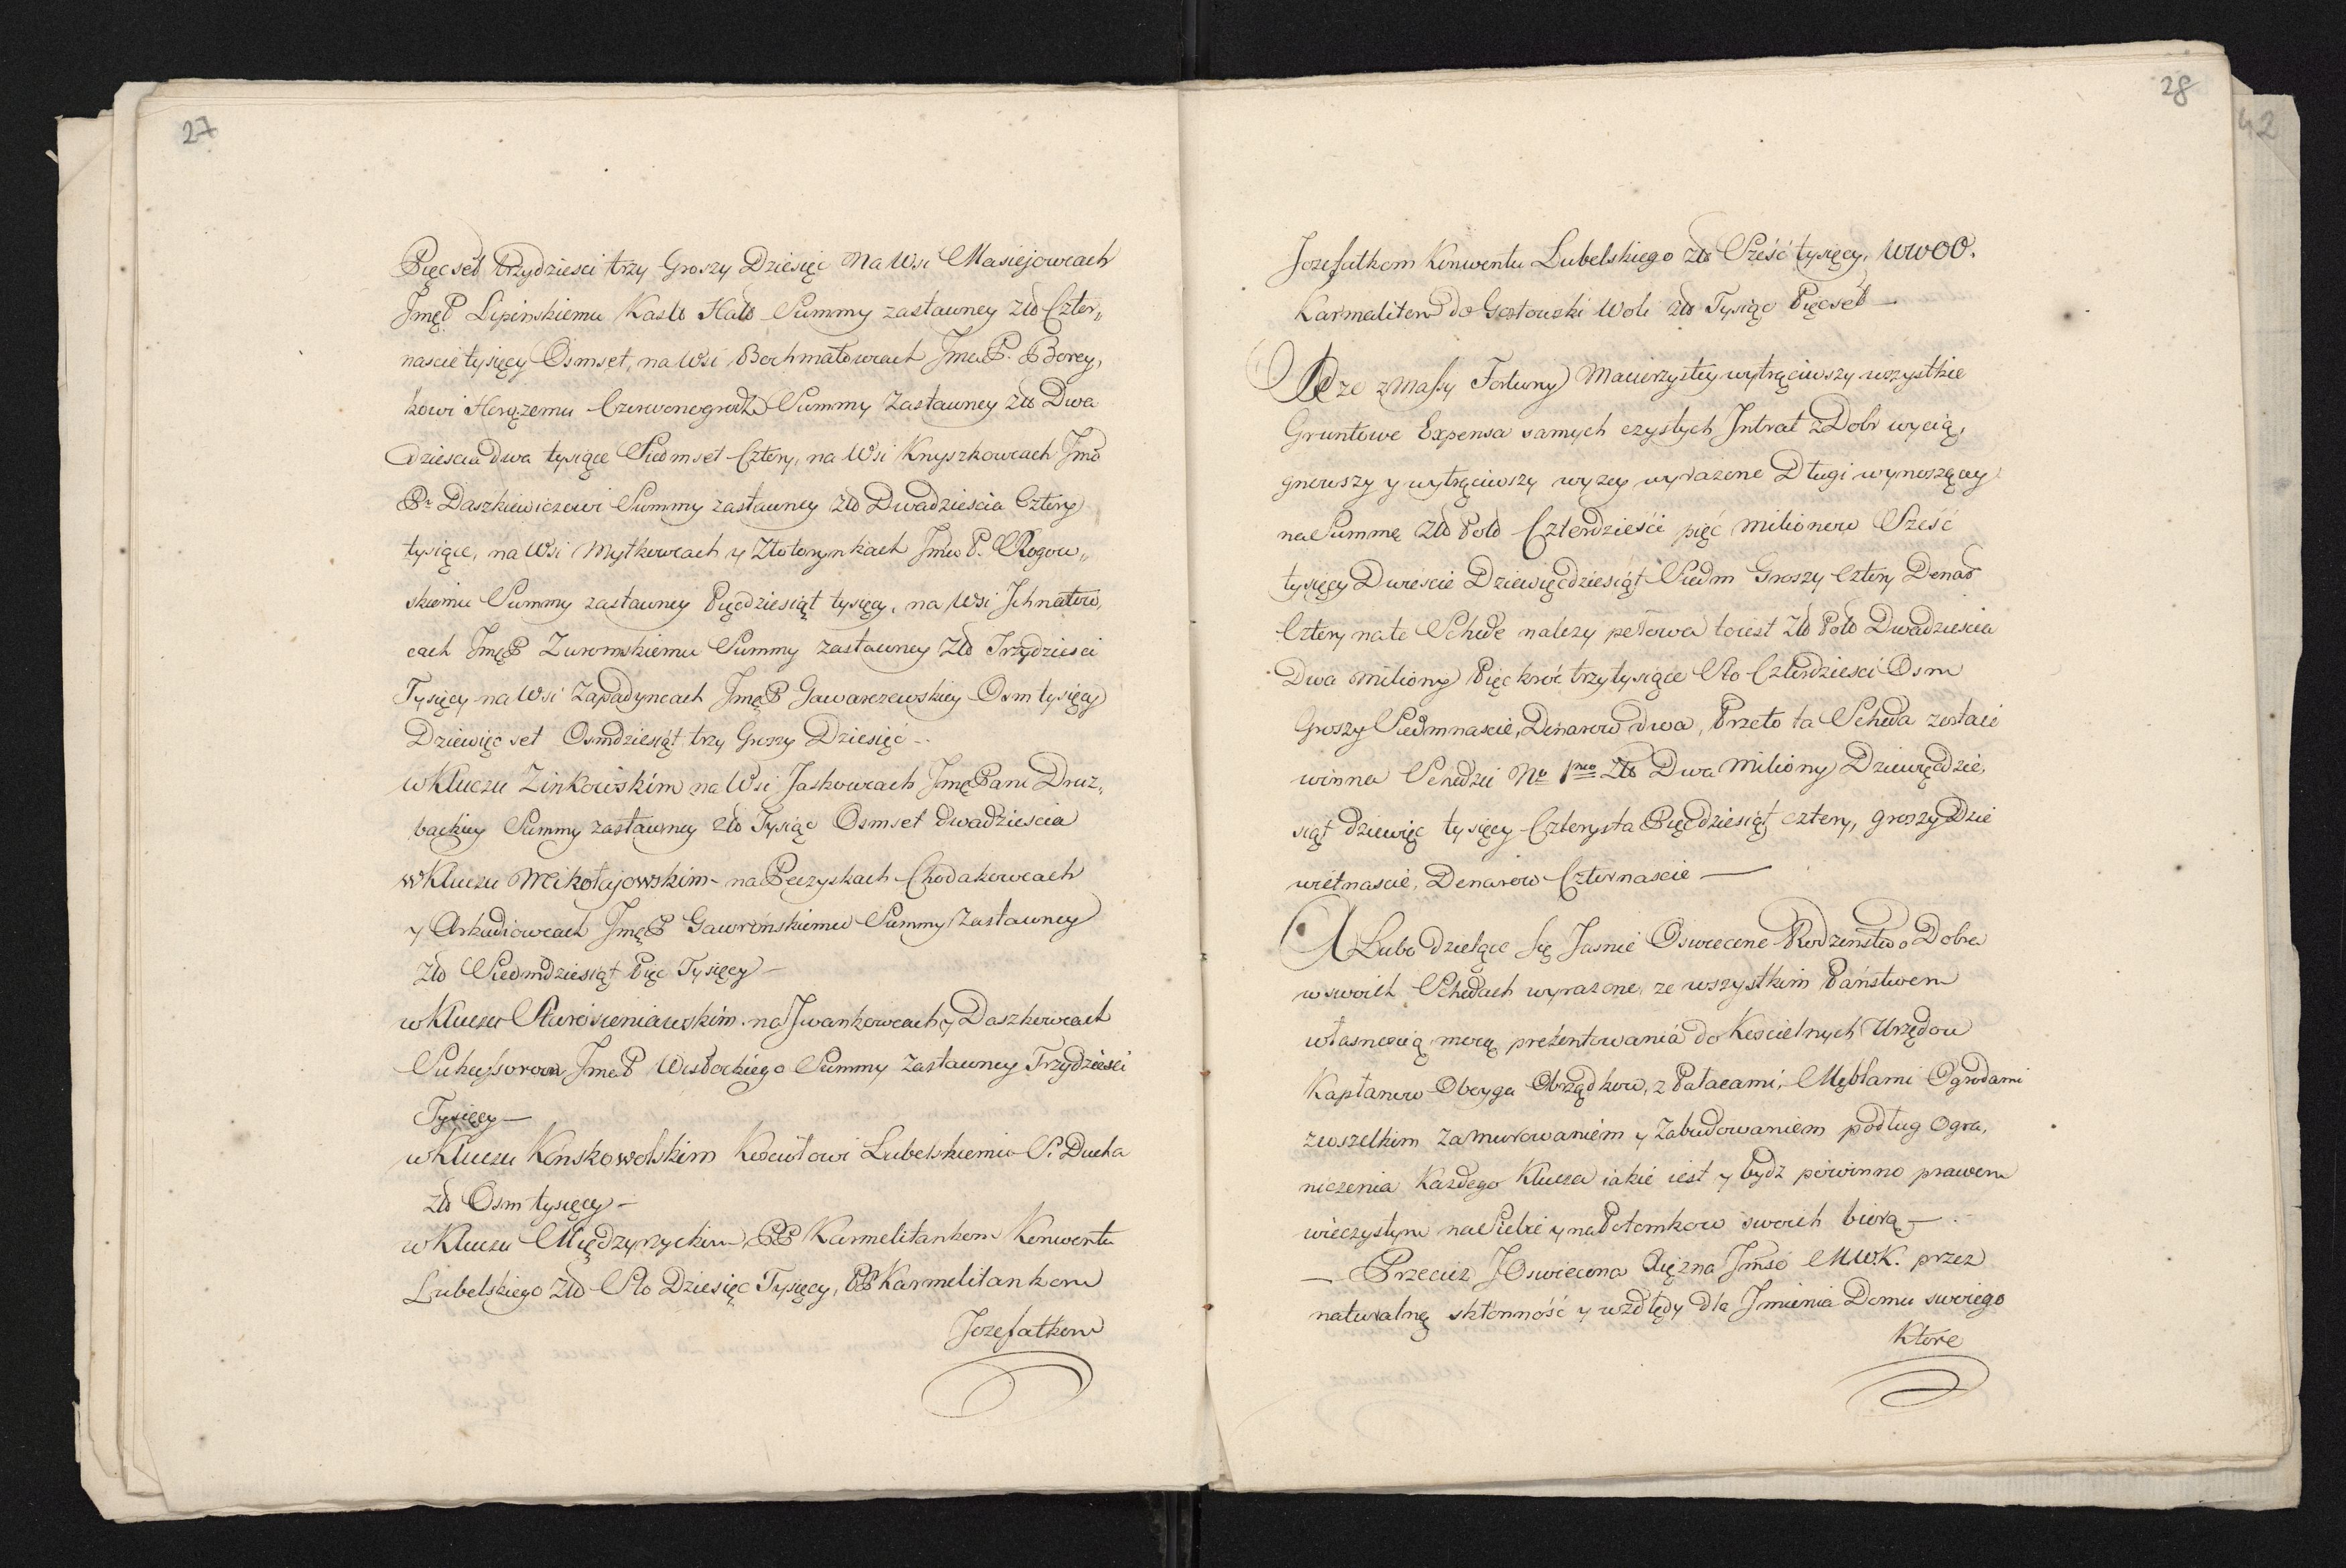 27
Pięcset trzydziesci trzy Groszy Dziesięc na Wsi Masiejowcach
JmęP Lipinskiemu Kaszto Hals Summy zastawney Zło Czter„
nascie tysięcy Osmset, na Wsi Bochmatowcach JmcP. Borey,
kowi Horązemu Czerwonogrodz Summy Zastawney Zło Dwa
dziescia dwa tysiące Siedmset Cztery, na Wsi Knyszkowcach Jmo
Pr Daszkiewiczowi Summy zastawney Zło Dwadziescia Cztery
tysiące, na Wsi Mytkowcach y Złotorynkach Jmo P. Rogow„
skiemu Summy zastawney Pięcdziesiąt tysięcy, na Wsi Jchnatow,
cach JmęP Zuromskiemu Summy zastawney Zło Trzydziesci
Tysięcy na Wsi Zapadyncach JmęP Gawarzewskiey Osm tysięcy
Dziewięc set Osmdziesiąt trzy Groszy Dziesięć –
w Kluczu Zinkowskim na Wsi Jaskowcach JmęPani Druz,
backiey Summy zastawney Zło Tysiąc Osmset dwadziescia
w Kluczu Mikołajowskim – na Peczyskach Chodakowcach
y Arkadiowcach JmęP Gawrońskiemu Summy Zastawney
Zło Siedmdziesiąt Pięc Tysięcy –
w Kluczu Starosieniawskim na Jwankowcach y Daszkowcach
Sukcessorom JmcP Wisłockiego Summy Zastawney Trzydziesci
Tysięcy –
w Kluczu Konskowolskim Kosciołowi Lubelskiemu S. Ducha
Zło Osm tysięcy –
w Kluczu Międzyrzyckim PP Karmelitankom Konwentu
Lubelskiego Zło Sto Dziesięc Tysięcy, PP Karmelitankom
Jozefatkom
28
42
Jozefatkom Konwentu Lubelskiego Zło Sześć tysięcy, WWOO.
Karmalitom do Woli Zło Tysiąc Pięcset –
A ze z Massy Fortuny Macierzystey wytrąciwszy wszystkie
Gruntowe Expensa samych czystych Jntrat z Dobr wycią,
gnowszy y wytrąciwszy wyzey wyrazone Długi wynoszącey
na Summę Zło Pols Czterdzieści pięć milionow Sześć
tysięcy Dwiescie Dziewięcdziesiąt Siedm Groszy Cztery Denar
Cztery na te Schede nalezy połowa toiest Zło Pols Dwadziescia
Dwa miliony Pięckroć trzy tysiące Sto Czterdziesci Osm
Groszy Siedmnascie, Denarow dwa, Przeto ta Scheda zostaie
winna Schedzie No 1mo Zło Dwa miliony Dziewięcdzie,
siąt dziewięc tysięcy Czterysta Pięcdziesiąt cztery, groszy Dzie
wietnascie, Denarow Czternascie –
A Lubo dzielące Się Jasnie Oswiecone Rodzeństwo Dobra
w swoich Schedach wyrazone, ze wszystkim Państwem
własnoscią mocą prezentowania do Koscielnych Urzędow
Kapłanow Oboyga Obrządkow, z Pałacami, Meblami Ogrodami
zwszelkim zamurowaniem y Zabudowaniem podług Ogra,
niczenia Kazdego Klucza iakie iest y bydz powinno prawem
wieczystym na Siebie y na Potomkow swoich biorą –
– Przeciez JOswiecona Xięzna Jmsć MWK. przez
naturalną skłonność y wzdlędy dla Jmienia Domu swoiego
Które